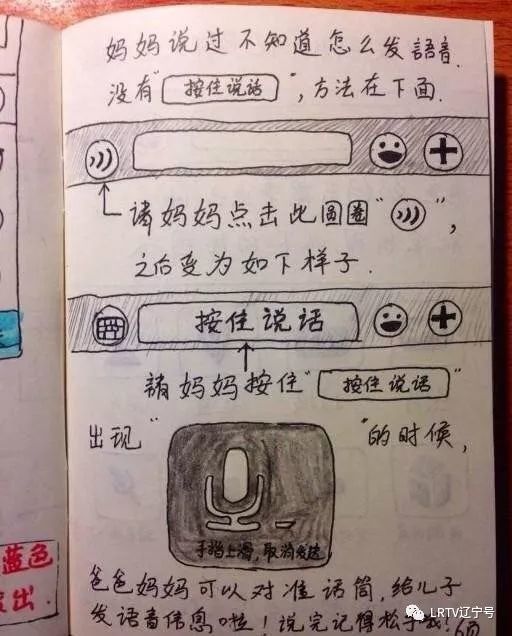 妈妈说过不知道怎么发語音.
没有“按住说话”,方法在下面.
请妈妈点击此圆圈“”,
之后变为如下样子.
按住说话
請妈妈按住“按住说话”
出现“ ”的时候,
手指上滑,取消发送
爸爸妈妈可以对准话筒,给儿子
发语音信息啦!说完记得松手哦!
蓝色
LRTV辽宁号